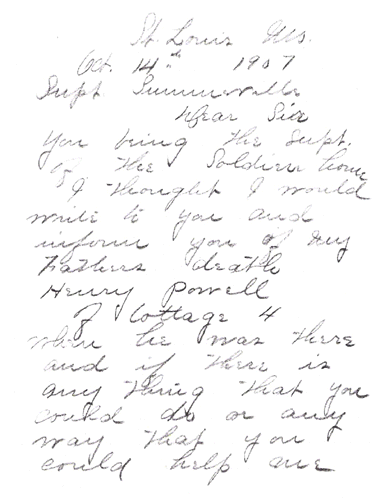 St. Louis Mo.
Oct. 14th 1907
Supt Summerville
Dear Sir
You being the Supt.
of the Soldier home
I thought I would
write to you and
inform you of my
Fathers death
Henry Powell
of Cottage 4
when he was there
and if there is
any thing that you
could do or any
way that you
could help me